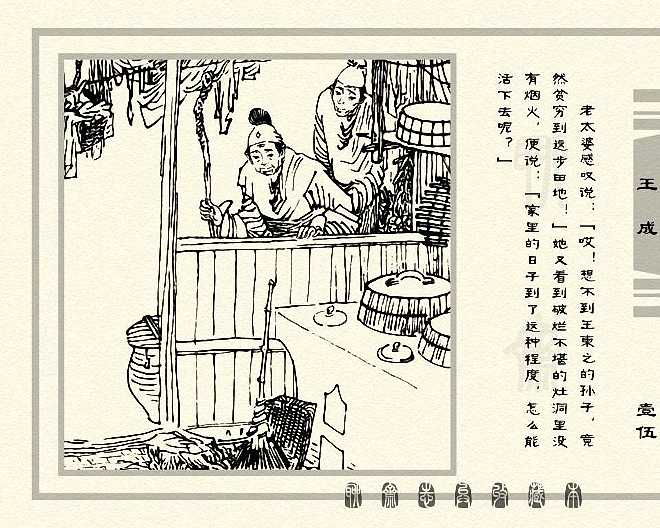 老太婆感叹说：「哎！想不到王柬之的孙子，竟
然贫穷到这步田地！」她又看到破烂不堪的灶洞里没
有烟火，便说：「家里的日子到了这种程度，怎么能
活下去呢？」
王成
壹伍